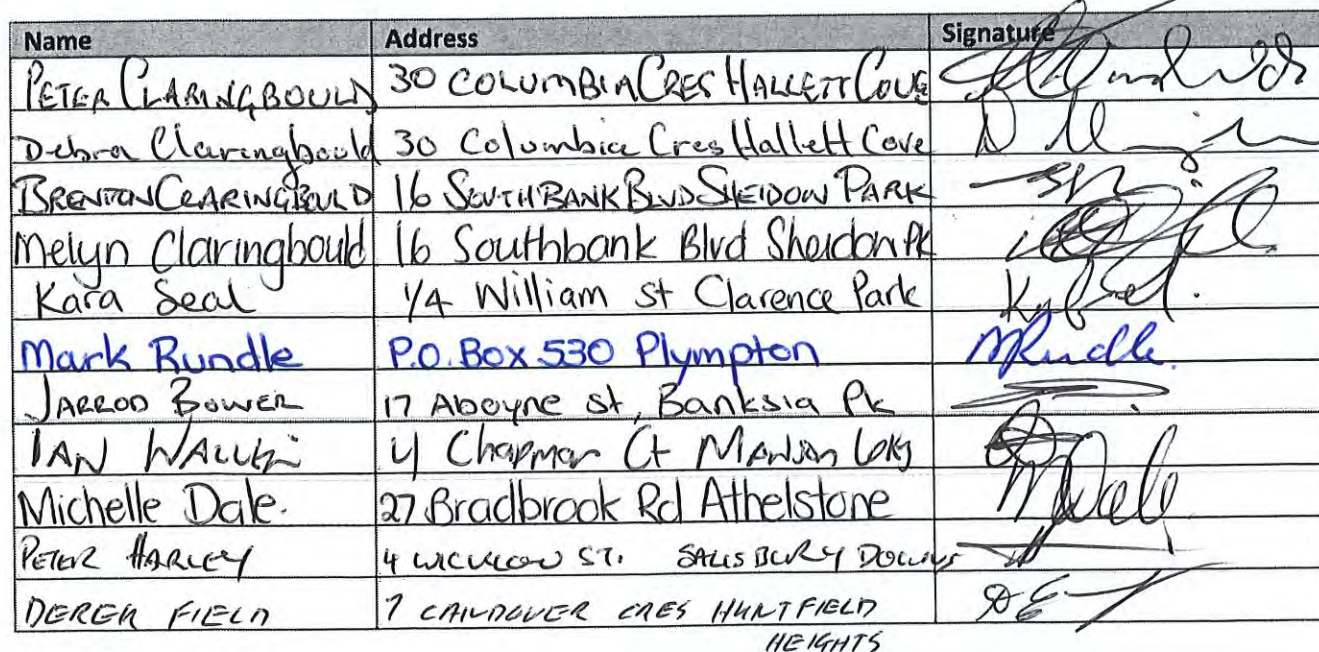 Name Address Signature
PETER CLARINGBOULD 30 COLUMBIA CRES HALLETT COVE
Debra Claringbould 30 Columbia Cres Hallett Cove
BRENTON CLARINGBOULD 16 SOUTHBANK BLVD SHEIDOW PARK
Melyn Claringbould 16 Southbank Blvd Sheidow Pk
Kara Seal 1/4 William St Clarence Park
Mark Rundle P.O. Box 530 Plympton MRundle.
JARROD BOWER 17 Aboyne st, Banksia Pk
IAN 4 Chapman Ct
Michelle Dale. 27 Bradbrook Rd Athelstone MDale
PETER HARLEY 4 WICKLOW ST. SALISBURY DOWNS
DEREK FIELD 7 CRES HUNTFIELD
HEIGHTS